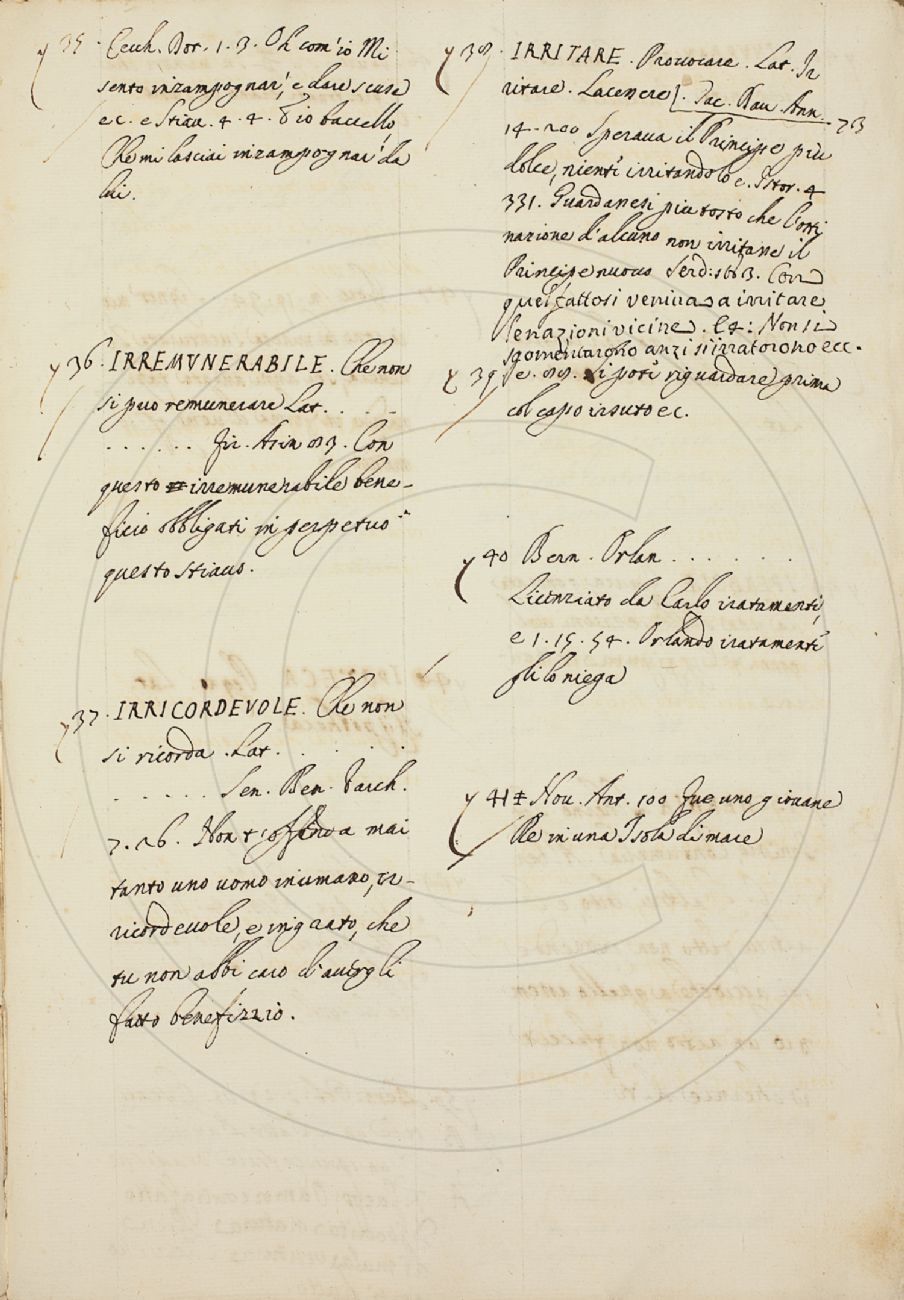 35. Cecch. Dot. 1. 3. Oh com'io Mi
sento inzampognar', e dare scuse
ec. e Stiau. 4. 4. Io baccello,
Che mi lasciai inzampognar' da
lui.
36. IRREMVNERABILE. Che non
si può remunerare Lat. . . . .
. . . . . . Fir. Asin 83. Con
questo irremunerabile bene-
ficio obbligati in perpetuo
questo stiauo.
37. IRRICORDEVOLE. Che non
si ricorda. Lat. . . . . .
. . . . . Sen. Ben. Varch.
7. 26. Non mai
tanto uno uomo inumano, ir-
ricordeuole, e ingrato, che
tu non abbi caro d'auergli
fatto benefizzio.
38. IRRITARE. Prouocare. Lat. Ir
ritare. Lacessere]. Tac. Dau. Ann.
14. 200 Speraua il Principe più 73
dolce, nienti irritandolo e. Istor. 4
331. Guardanesi piu tosto che
nazione d'alcuno non irritasse il
Principe nuouo Serd: 163. Con
quel fattosi veniua a irritare
le nazioni vicine. Et: Non si
anzi s'irratorono ecc.
39 e. 89. si potè riguardare prima
col capo irsuto ec.
40 Bern. Orlan . . . . . .
Licenziato da Carlo iratamenti,
e 1. 15. 54. Orlando iratamenti
gli lo niega
41 Nou. Ant. 100 Fue uno giouane
Re in una Isola di mare